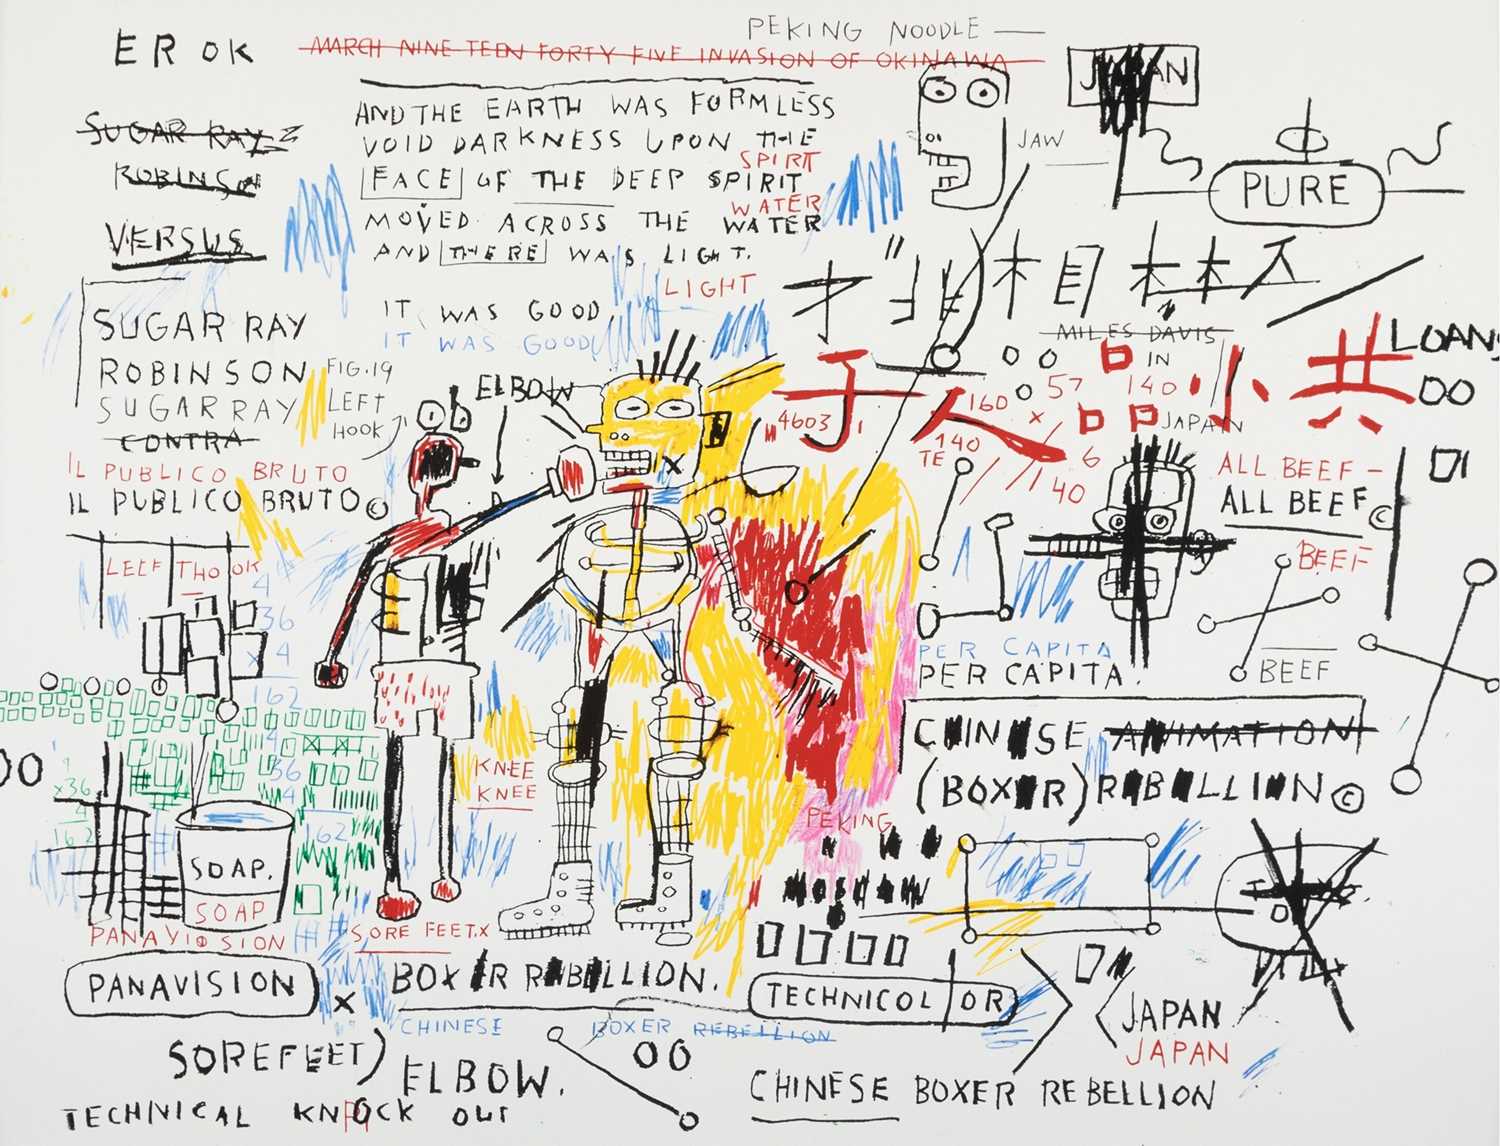 PEKING NOODLE —
ER OK
MARCH NINE TEEN FORTY FIVE INVASION OF OKINAWA
JAPAN
AND THE EARTH WAS FORMLESS
VOID DARKNESS UPON THE
SPIRIT
FACE OF THE DEEP SPIRIT
WATER
MOVED ACROSS THE WATER
AND THERE WAS LIGHT.
LIGHT
SUGAR RAY
ROBINSON
VERSUS
JAW
PURE
IT WAS GOOD
IT WAS GOOD
SUGAR RAY
ROBINSON
SUGAR RAY
CONTRA
FIG. 19
LEFT
HOOK
ELBOW
IL PUBLICO BRUTO
IL PUBLICO BRUTO ©
MILES DAVIS
IN
57 140
160 x
4603
140
TE
6
40
JAPAN
小 共
LOANS
00
ALL BEEF –
ALL BEEF ©
BEEF
BEEF
4
36
x 4
162
4
36
4
162
x36
4
162
PER CAPITA
PER CAPITA.
CHINESE ANIMATION
(BOXER) REBELLION ©
KNEE
KNEE
PEKING
00
SOAP.
SOAP
PANAVISION
PANAVISION
SORE FEET. X
X
BOXER REBELLION.
TECHNICOLOR
CHINESE BOXER REBELLION
JAPAN
JAPAN
SORE FEET)
ELBOW.
00
CHINESE BOXER REBELLION
TECHNICAL KNOCK OUT